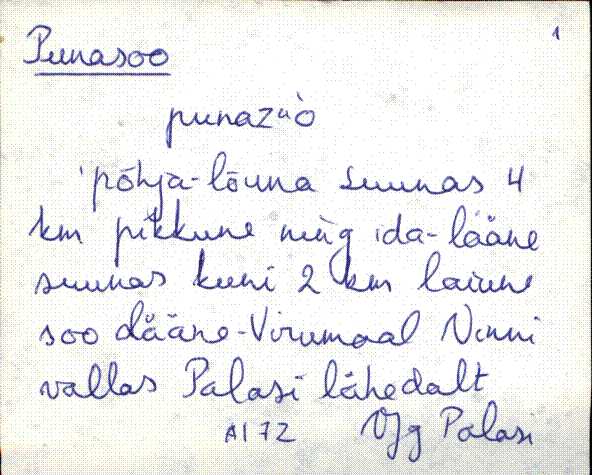 1
Punasoo
punazuò
põhja-lõuna suunas 4
km pikkune ning ida-lääne
suunas kuni 2 km laiune
soo Lääne-Virumaal Vinni
vallas Palasi lähedalt
AI 72 VJg Palasi